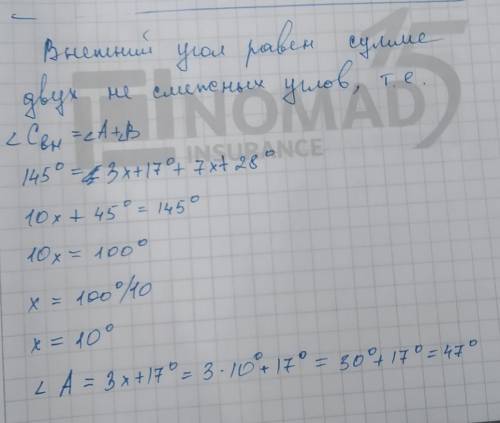 Внешний угол равен сумме
двух не смежных углов, т.е.
∠Cвн = ∠A+∠B
145° = 3x+17° + 7x+28°
10x + 45° = 145°
10x = 100°
x = 100°/10
x = 10°
∠A = 3x+17° = 3·10°+17° = 30°+17° = 47°
NOMAD 15
INSURANCE